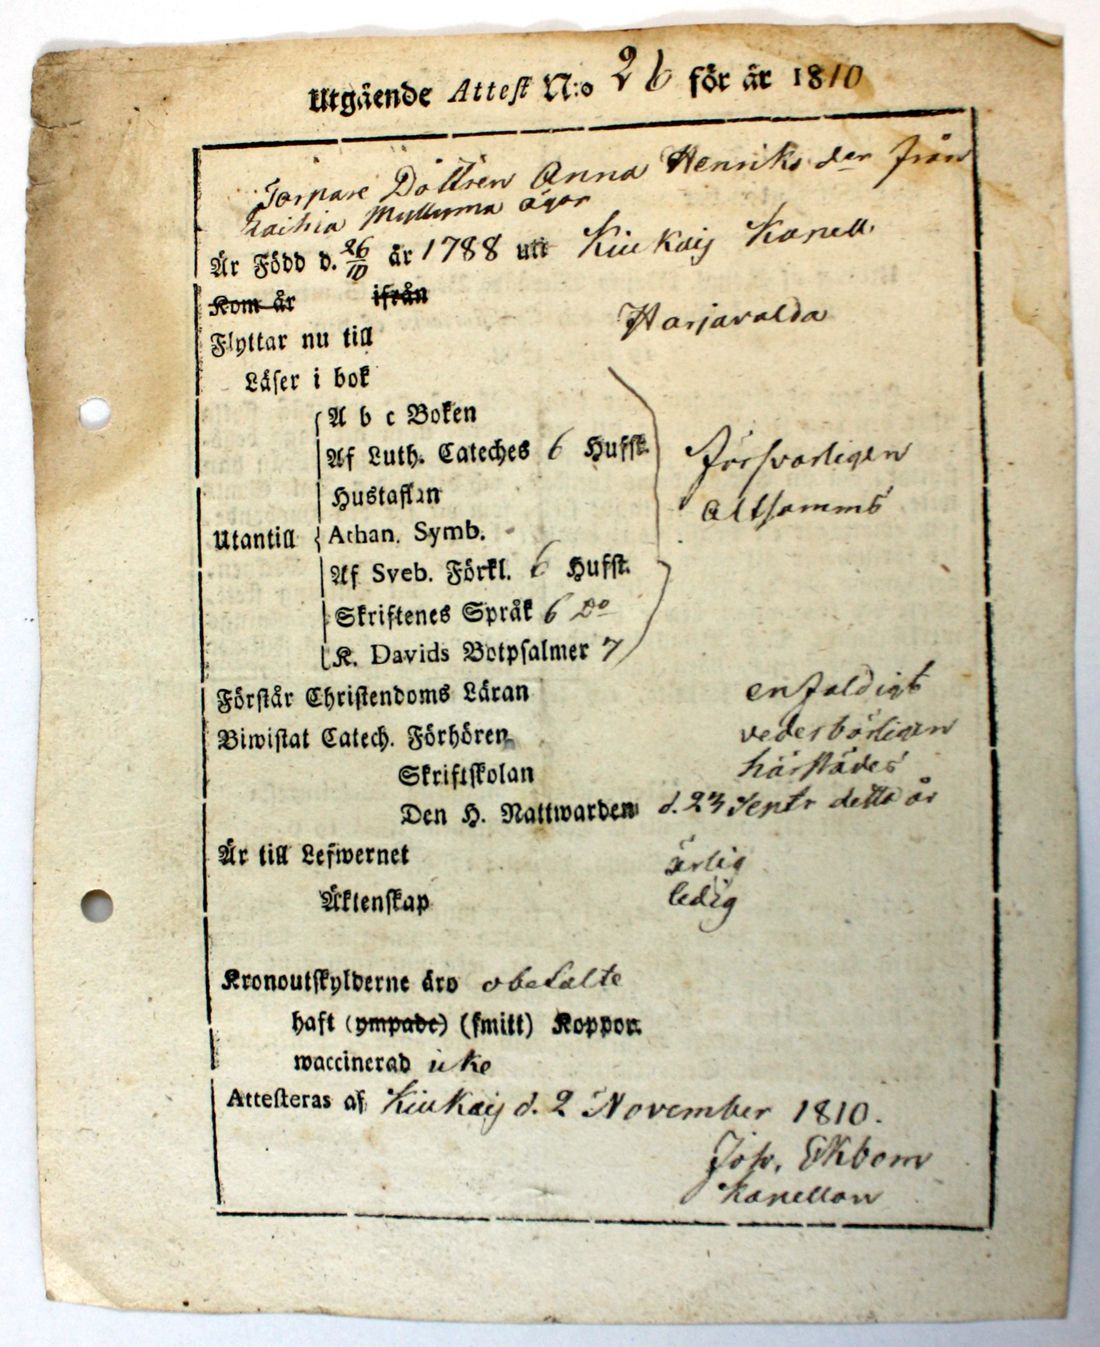 Utgående Attest N:o 26 för år 1810
Torpare Dottren Anna Henriks der från
Laihia Myllyma ägor
Är Född d. 26/10 år 1788 uti Kiukais Kapell.
Kom år ifrån
Flyttar nu till Harjavalda
Läser i bok
A b c Boken
Af Luth. Cateches 6 Hufst. försvarligen
Hustaflan altsamms
Utantill Athan. Symb.
Af Sveb. Förkl. 6 Hufst.
Skriftenes Språk 6 Do
K. Davids Botpsalmer 7
Förstår Christendoms Läran enfaldigt
Biwistat Catech. Förhören vederbörligen
Skriftskolan härstädes
Den H. Nattwarden d. 23 Septr detta år
Är till Lefwernet ärlig
Äktenskap ledig
Kronoutskylderne äro obetalte
haft (ympade) (smitt) Koppor.
waccinerad icke
Attesteras af Kiukais d. 2 November 1810.
Joh. Ekbom
Kapellan